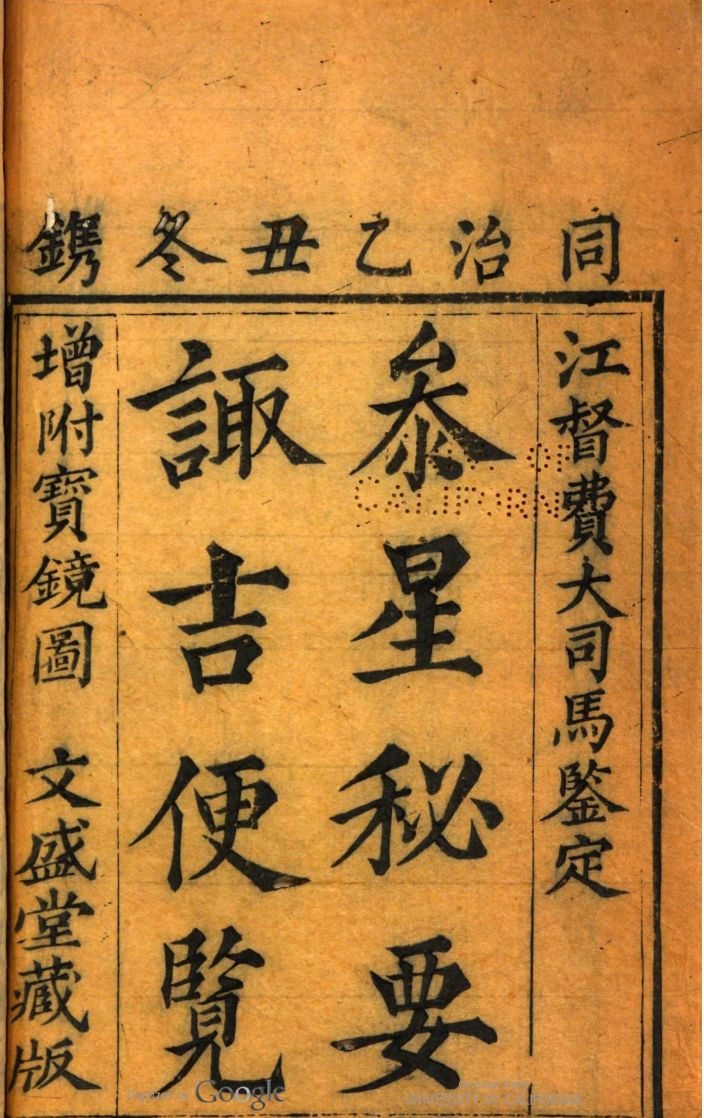 同治乙丑冬鐫
江督費大司馬鑒定
叅星秘要
諏吉便覽
增附寶鏡圖 文盛堂藏版
CALIFORN
Digitized by Google
UNIVERSITY OF CALIFORNIA